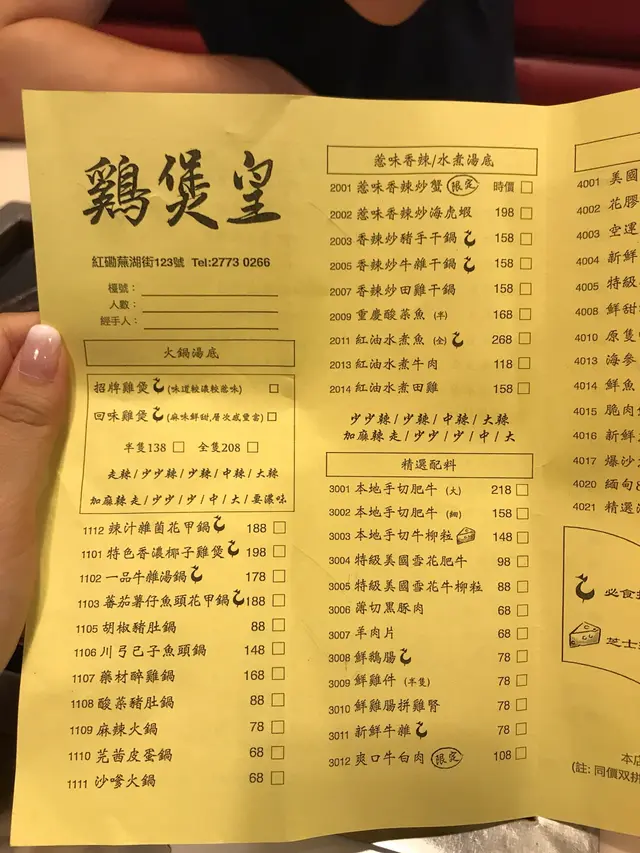 鷄煲皇
紅磡蕪湖街123號 Tel:2773 0266
檯號：
人數：
經手人：
火鍋湯底
招牌雞煲 (味道較濃較惹味)
回味雞煲 (麻味鮮甜,層次感豐富)
半隻138 全隻208
走辣/少少辣/少辣/中辣/大辣
加麻辣走/少少/少/中/大/要濃味
1112 辣汁雜菌花甲鍋 188
1101 特色香濃椰子雞煲 198
1102 一品牛雜湯鍋 178
1103 蕃茄薯仔魚頭花甲鍋 188
1105 胡椒豬肚鍋 88
1106 川弓己子魚頭鍋 148
1107 藥材醉雞鍋 168
1108 酸菜豬肚鍋 88
1109 麻辣火鍋 78
1110 芫茜皮蛋鍋 68
1111 沙嗲火鍋 68
惹味香辣/水煮湯底
2001 惹味香辣炒蟹 限定 時價
2002 惹味香辣炒海虎蝦 198
2003 香辣炒豬手干鍋 158
2005 香辣炒牛雜干鍋 158
2007 香辣炒田雞干鍋 158
2009 重慶酸菜魚 (半) 168
2011 紅油水煮魚 (全) 268
2013 紅油水煮牛肉 118
2014 紅油水煮田雞 158
少少辣/少辣/中辣/大辣
加麻辣走/少少/少/中/大
精選配料
3001 本地手切肥牛 (大) 218
3002 本地手切肥牛 (細) 158
3003 本地手切牛柳粒 148
3004 特級美國雪花肥牛 98
3005 特級美國雪花牛柳粒 88
3006 薄切黑豚肉 68
3007 羊肉片 68
3008 鮮鵝腸 78
3009 鮮雞件 (半隻) 78
3010 鮮雞腸拼雞腎 78
3011 新鮮牛雜 78
3012 爽口牛白肉 限定 108
4001 美國
4002 花膠
4003 空運
4004 新鮮
4005 特級
4008 鮮甜
4010 原隻
4013 海參
4014 鮮魚
4015 脆肉
4016 新鮮
4017 爆沙
4020 緬甸
4021 精選
必食
芝士
本店
(註: 同價双拼